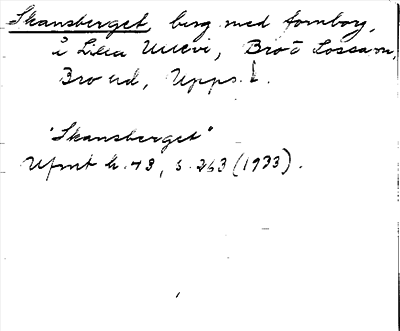 Skansberget, berg med fornborg,
å Lilla Ullevi, Bro o Lossa sn,
Bro hd, Upps. l.
"Skansberget"
Ufmt h. 43, s. 263 (1933).